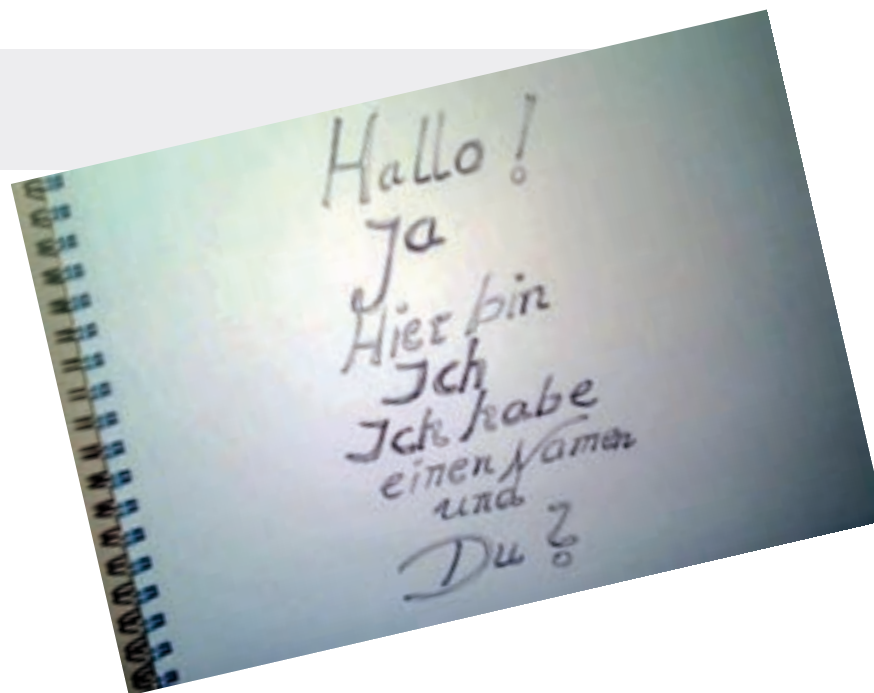 Hallo!
Ja
Hier bin
Ich
Ich habe
einen Namen
und
Du?